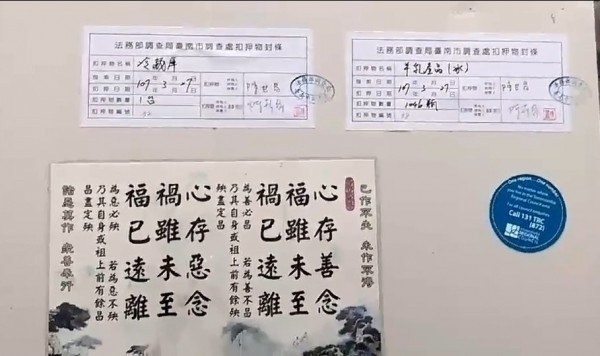 法務部調查局臺南市調查處扣押物封條
扣押物名稱 冷藏庫
107年3月27日
扣押物數量 1台
扣押物編號
法務部調查局臺南市調查處扣押物封條
扣押物名稱 羊乳產品(冰)
107年3月27日
扣押物數量 1046瓶
扣押物編號
已作不失 未作不得
心存善念
福雖未至
禍已遠離
為善必昌 若為善不昌
乃其自身或祖上前有餘殃
殃盡定昌
心存惡念
禍雖未至
福已遠離
為惡必殃 若為惡不殃
乃其自身或祖上前有餘昌
昌盡定殃
諸惡莫作 眾善奉行
One region... One number
No matter where
you live in the Toowoomba
Regional Council area
For all council enquiries
Call 131 TRC
(872)
REGIONAL
COUNCIL